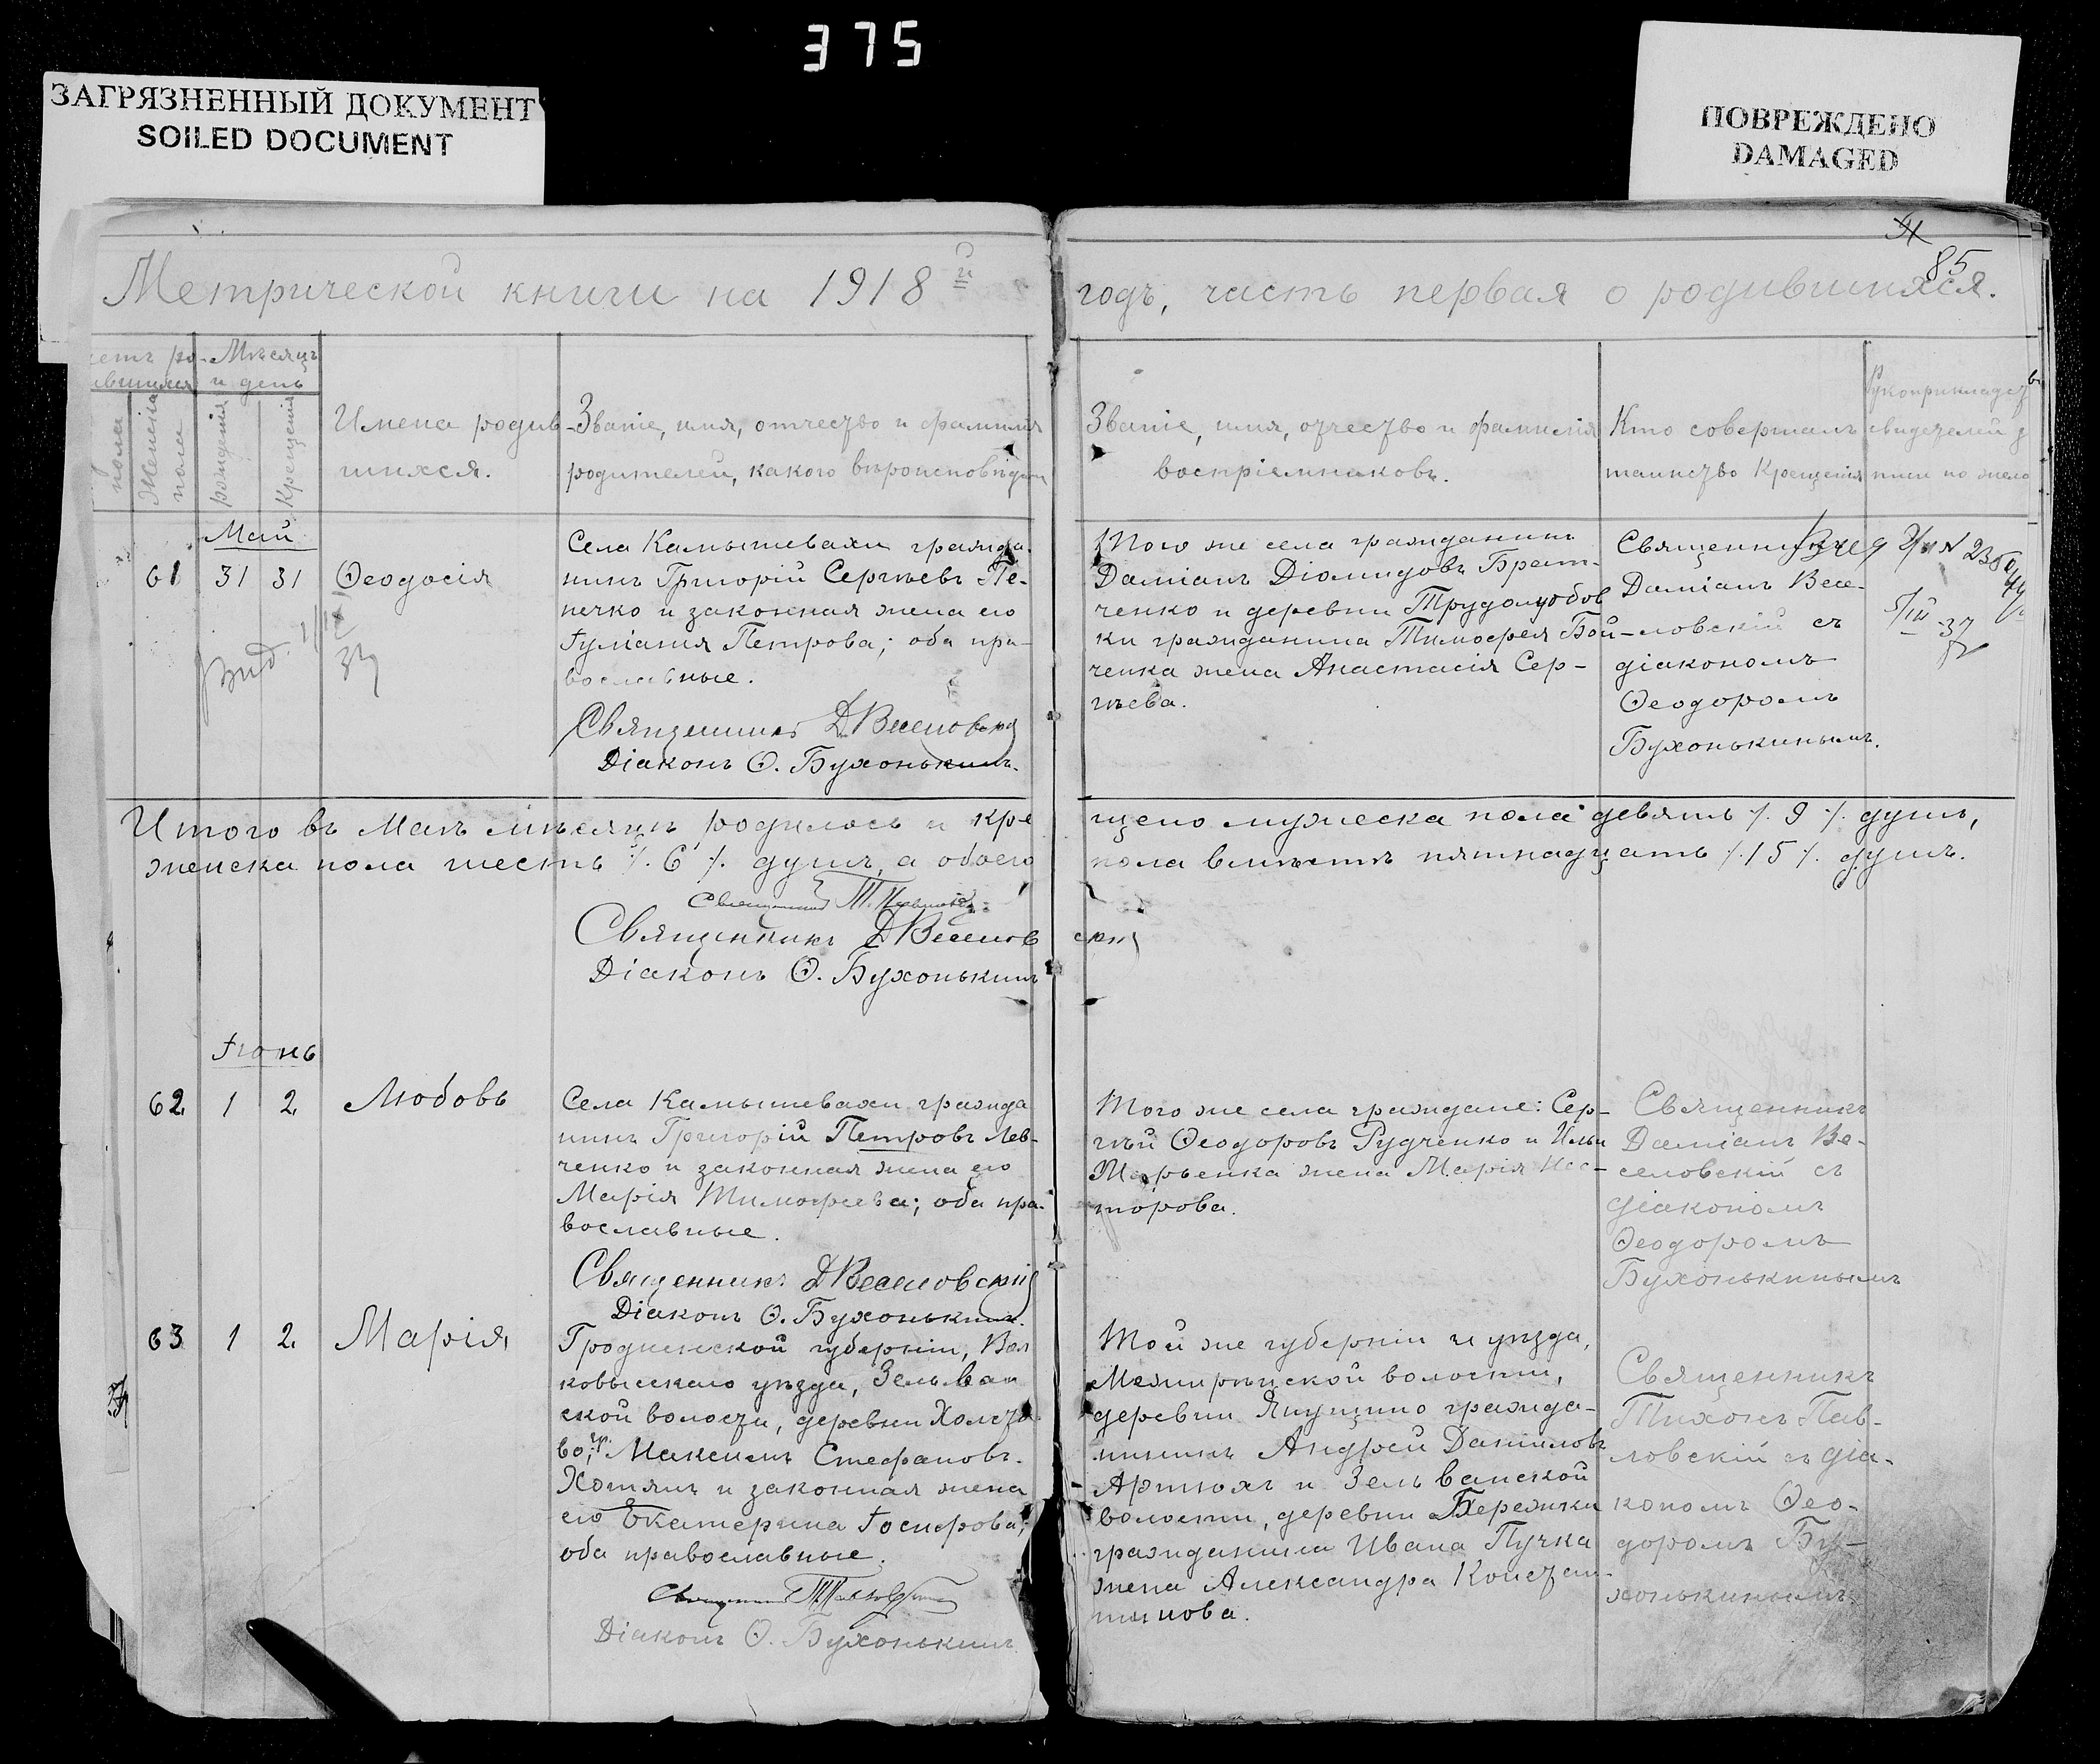 375
ЗАГРЯЗНЕННЫЙ ДОКУМЕНТ
SOILED DOCUMENT
ПОВРЕЖДЕНО
DAMAGED
85
Метрической книги на 1918 й
годъ, часть первая о родившихся.
Мѣсяцъ
и день
Женска
пола
рожденія
Крещенія
Имена родив-
шихся.
Званіе, имя, отчество и фамилія
родителей, какого вѣроисповѣданія
Званіе, имя, отчество и фамилія
воспріемниковъ.
Кто совершалъ
таинство Крещенія
Рукоприкладств
свидетелей з
писи по жела
Май
61 31 31 Ѳеодосія
Села Камышевахи гражда-
нинъ Григорій Сергѣевъ Пе-
печко и законная жена его
Іуліанія Петрова; оба пра-
вославные.
Священникъ Д Веселовскій
Діаконъ Ѳ. Бухонькинъ.
Того же села гражданинъ
Даміанъ Діомидовъ Брат-
ченко и деревни Трудолюбов
ки гражданина Тимофея Бой-
ченка жена Анастасія Сер-
гѣева.
Священникъ
Даміанъ Весе-
ловскій съ
діакономъ
Ѳеодоромъ
Бухонькинымъ.
Итого въ Маѣ мѣсяцѣ родилось и кре
щено мужеска пола девять ./. 9 ./. душъ,
женска пола шесть ./. 6 ./. душъ, а обоего
пола вмѣстѣ пятнадцать ./. 15 ./. душъ.
Священникъ
Священникъ Д Веселов
скій
Діаконъ Ѳ. Бухонькинъ
Іюнь
62 1 2 Любовь
Села Камышевахи гражда
нинъ Григорій Петровъ Лев-
ченко и законная жена его
Марія Тимофеева; оба пра-
вославные.
Священникъ Д Веселовскій
Діаконъ Ѳ. Бухонькинъ.
Того же села граждане: Сер-
гѣй Ѳеодоровъ Рудченко и Ильи
Марьенка жена Марія Нес-
торова.
Священникъ
Даміанъ Ве-
селовскій съ
діакономъ
Ѳеодоромъ
Бухонькинымъ
63 1 2 Марія
Гродненской губерніи, Вол
ковысскаго уѣзда, Зельван
ской волости, деревни Холсто
во, гр. Максимъ Стефановъ
Хотянъ и законная жена
его Екатерина Іосифова;
оба православные.
Священникъ Т Павловскій
Діаконъ Ѳ. Бухонькинъ
Той же губерніи и уѣзда,
Межирѣцской волости,
деревни Янущино гражда-
нинъ Андрей Даниловъ
Артюхъ и Зельванской
волости, деревни Бережки
гражданина Ивана Пучка
жена Александра Констан-
тинова.
Священникъ
Тихонъ Пав-
ловскій съ діа-
кономъ Ѳео-
доромъ Бу-
хонькинымъ